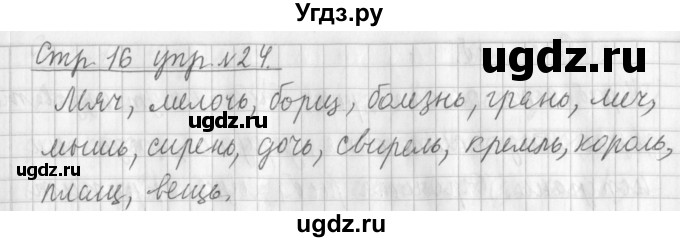 Угдз.ру
Стр. 16 упр. №24.
Мяч, мелочь, борщ, болезнь, грань, меч,
мышь, сирень, дочь, свирель, кремль, король,
плащ, вещь.
ugdz.ru
ugdz.ru
ugdz.ru
ugdz.ru